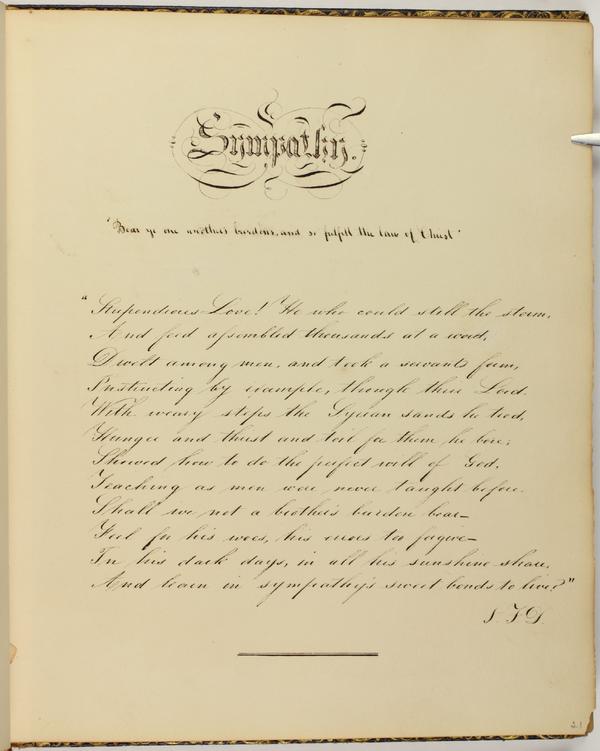 Sympathy.
"Bear ye one another's burdens, and so fulfill the law of Christ"
"Stupendious Love! He who could still the storm,
And feed assembled thousands at a word,
Dwelt among men, and took a servants form,
Instructing by example, though their Lord.
With weary steps the Syrian sands he trod,
Hunger and thirst and toil for them he bore;
Showed how to do the perfect will of God,
Teaching as men were never taught before.
Shall we not a brother's burden bear—
Feel for his woes, his errors too forgive—
In his dark days, in all his sunshine share,
And learn in sympathy's sweet bonds to live?"
S. T. D.
21